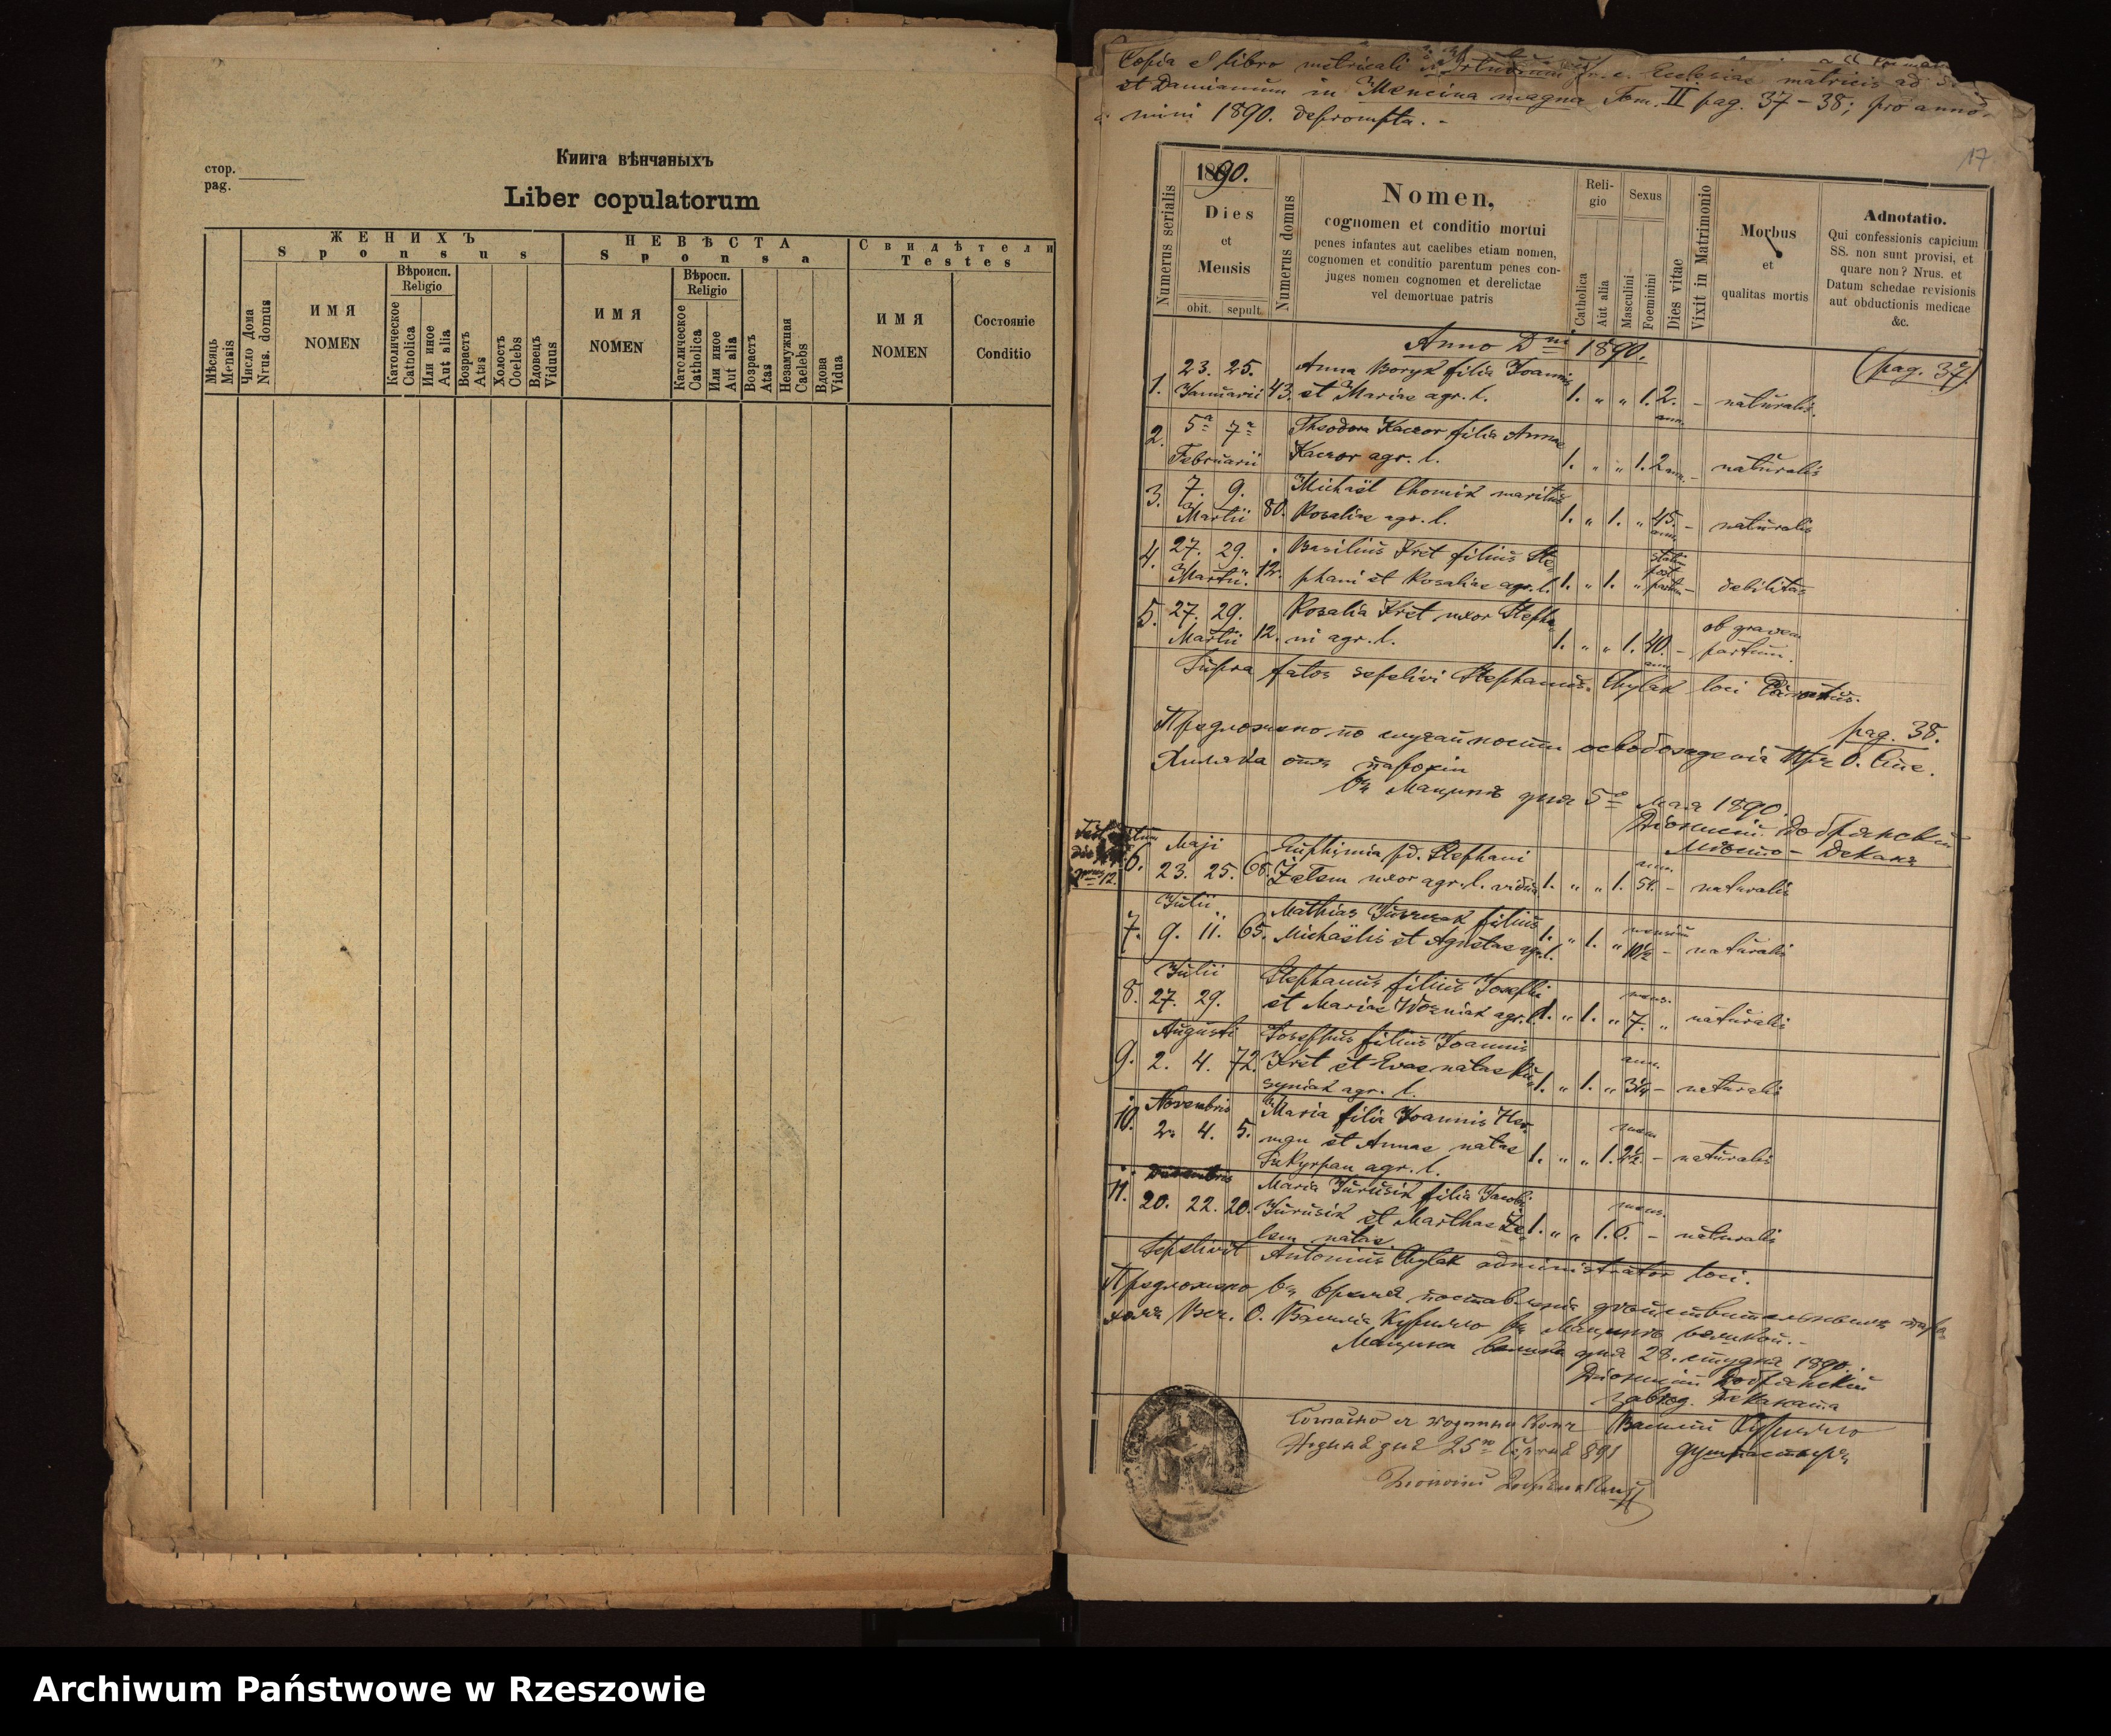 стор.
pag.
Книга вѣнчаныхъ
Liber copulatorum
Мѣсяць
Mensis
Число Дома
Nrus. domus
ЖЕНИХЪ
Sponsus
ИМЯ
NOMEN
Вѣроисп.
Religio
Католическое
Catholica
Или иное
Aut alia
Возрастъ
Atas
Холостъ
Coelebs
Вдовецъ
Vidus
НЕВѢСТА
Sponsa
ИМЯ
NOMEN
Вѣросп.
Religio
Католическое
Catholica
Или иное
Aut alia
Возрастъ
Atas
Незамужная
Caelebs
Вдова
Vidua
Свидѣтели
Testes
ИМЯ
NOMEN
Состояніе
Conditio
Copia e libro metricali Mortuorum gr. c. Ecclesiae matricis ad
et Damianum in Mencina magna Tom. II pag. 37-38; pro anno
mini 1890. deprompta.-
17
Numerus serialis
1890.
Dies
et
Mensis
obit. sepult.
Numerus domus
Nomen,
cognomen et conditio mortui
penes infantes aut caelibes etiam nomen,
cognomen et conditio parentum penes con-
juges nomen cognomen et derelictae
vel demortuae patris
Reli-
gio
Catholica
Aut alia
Sexus
Masculini
Foeminini
Dies vitae
Vixit in Matrimonio
Morbus
et
qualitas mortis
Adnotatio.
Qui confessionis capicium
SS. non sunt provisi, et
quare non? Nrus. et
Datum schedae revisionis
aut obductionis medicae
&c.
Anno Dni 1890.
(pag. 37)
1. 23. 25. Januarii 43. Anna Boryk filia Joannis
et Mariae agr. l. 1. " " 1. 2. ann. - naturalis.
2. 5a 7a Februarii Theodora Kaczor filia Annae
Kaczor agr. l. 1. " " 1. 2 ann. - naturalis
3. 7. 9. Martii 80. Michaël Chomik maritus
Rosaliae agr. l. 1. " 1. " 45. ann. - naturalis
4. 27. 29. Martii. 12. Basilius Kret filius Ste-
phani et Rosaliae agr. l. 1. " 1. " statim post partum - debilitas
5. 27. 29. Martii 12. Rosalia Kret uxor Stepha-
ni agr. l. 1. " " 1. 40. ann. - ob gravem partum.
Supra fatos sepelivi Stephanus Chylak loci Parochus.
pag. 38.
Предложено по случайности освобожденія Пр. О. Сте.
Хиляка отъ парохіи
въ Мацинѣ дня 5го мая 1890.
Діонисій Добрянскій
Мѣсто-Деканъ
6. Maji 23. 25. 68. Euphimia pd. Stephani
Zelem uxor agr. l. vidua 1. " " 1. ann. 54. - naturalis
7. Julii 9. 11. 65. Mathias Jurczak filius
Michaëlis et Agnetae agr. l. 1. " 1. " mensium 10½ - naturalis
8. Julii 27. 29. Stephanus filius Josephi
et Mariae Wozniak agr. l. 1. " 1. " mens. 7. " naturalis
9. Augusti 2. 4. 72. Josephus filius Joannis
Kret et Evae natae
agr. l. 1. " 1. " ann. 3¼ - naturalis
10. Novembris 2. 4. 5. Maria filia Joannis Her
man et Annae natae
agr. l. 1. " " 1. 2½. - naturalis
11. Decembris 20. 22. 20. Maria Jurusik filia Jacobi
Jurusik et Marthae Ze-
lem natae 1. " " 1. mens. 6. - naturalis
Sepelivit Antonius Chylak administrator loci.
Предложено въ время поставленія дѣйствительнымъ паро-
хомъ Веч. О. Василія Курилло въ Мацинѣ великой.-
Мацина велика дня 28. студня 1890.
Діонисій Добрянскій
завѣд. Деканата
Согласно Василій Курилло
дня 25го 891 душпастырь
Діонисій Добрянскій
Archiwum Państwowe w Rzeszowie